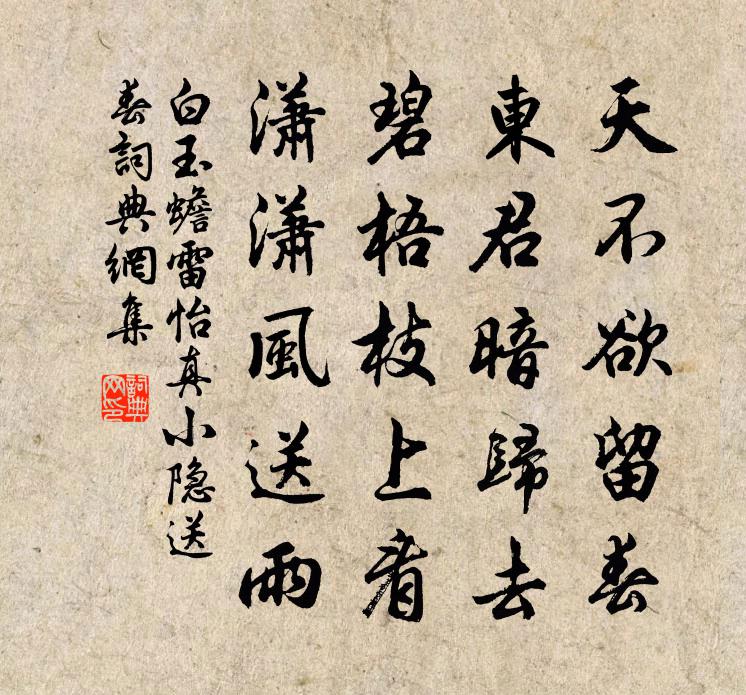 天不欲留春
東君暗歸去
碧梧枝上看
瀟瀟風送雨
白玉蟾雷怡真小隐送
春詞典網集
詞典网印